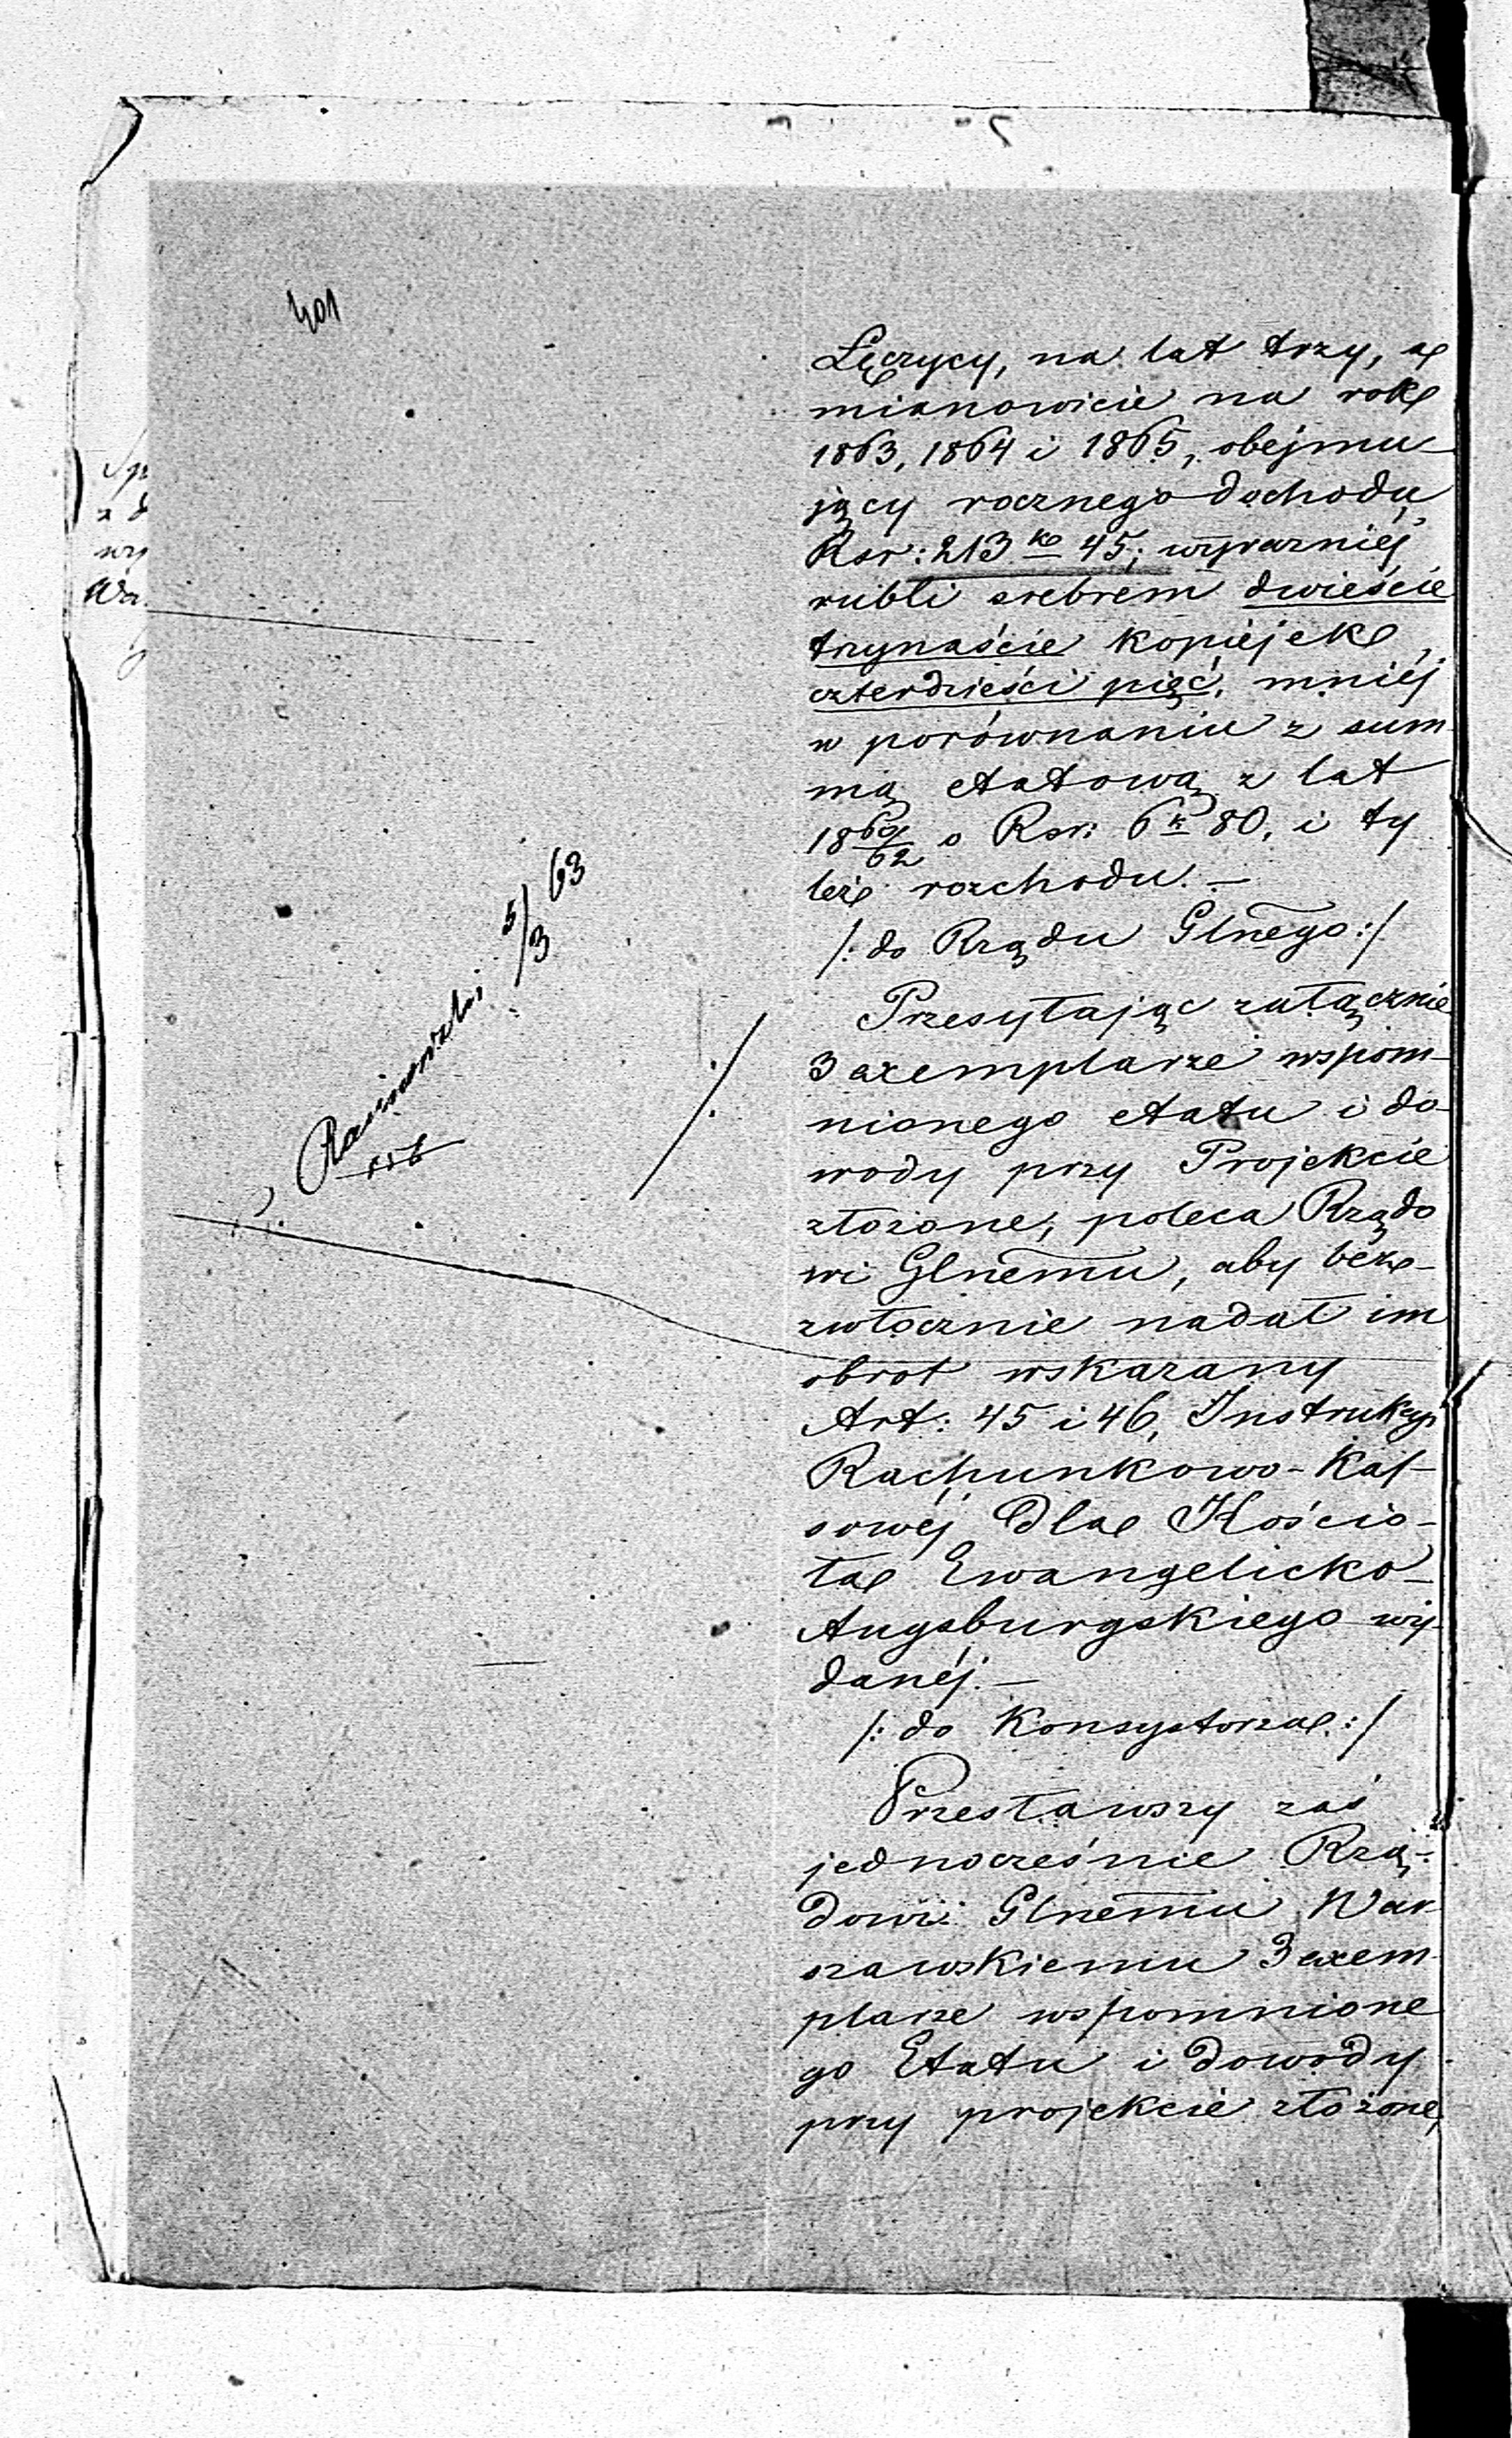 401
Łęczycy, na lat trzy, a
mianowicie na rok
1863, 1864 i 1865, obejmu-
jący rocznego dochodu
Rsr: 213 k 45; wyraźniej
rubli srebrem dwieście
trzynaście kopiejek
czterdzieści pięć, mniej
w porównaniu z sum
mą etatową z lat
1860/62 o Rsr: 6 k 80, i ty
leż rozchodu. —
/: do Rządu Glnego :/
Przesyłając załącznie
3 exemplarze wspom-
nionego etatu i do-
wody przy Projekcie
złożone, poleca Rządo
wi Glnemu, aby bez-
zwłocznie nadał im
obrot wskazany
Art: 45 i 46, Instrukcyi
Rachunkowo-Kas-
sowéj dla Kościo-
ła Ewangelicko-
Augsburgskiego wy-
danéj. —
/: do Konsystorza :/
Przesławszy zaś
jednocześnie Rzą-
dowi Glnemu War
szawskiemu 3 exem-
plarze wspomnione
go Etatu i dowody
przy projekcie złożone,
5/3 63